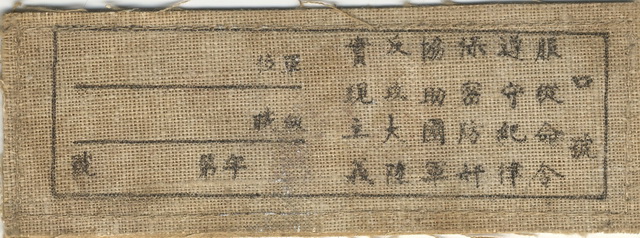 口號
服從命令
遵守紀律
保密防奸
協助國軍
反攻大陸
實現主義
單位
級職
年第 號